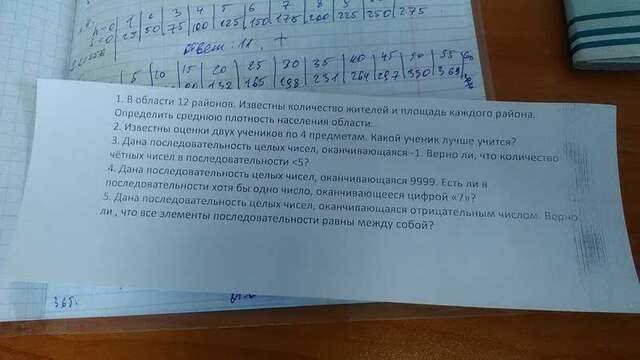 1 2 3 4 5 6 7 8 9
25 50 75 100 125 150 175 200 225 250 275
Ответ: 11. +
5 10 15 20 25 30 35 40 45 50 55
132 165 198 231 264 297 330 363
1. В области 12 районов. Известны количество жителей и площадь каждого района.
Определить среднюю плотность населения области.
2. Известны оценки двух учеников по 4 предметам. Какой ученик лучше учится?
3. Дана последовательность целых чисел, оканчивающаяся -1. Верно ли, что количество
чётных чисел в последовательности <5?
4. Дана последовательность целых чисел, оканчивающаяся 9999. Есть ли в
последовательности хотя бы одно число, оканчивающееся цифрой «7»?
5. Дана последовательность целых чисел, оканчивающаяся отрицательным числом. Верно
ли , что все элементы последовательности равны между собой?